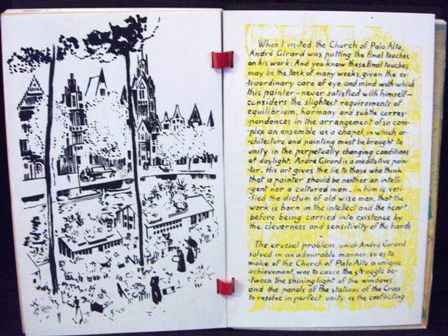 When I visited the Church of Palo Alto,
André Girard was putting the final touches
on his work; And you know these final touches
may be the task of many weeks, given the ex-
traordinary care of eye and mind with which
this painter - never satisfied with himself -
considers the slightest requirements of
equilibrium, harmony and subtle corres-
pondences in the arrangement of so com-
plex an ensemble as a chapel, in which ar-
chitecture and painting must be brought to
unity in the perpetually changing conditions
of daylight. André Girard is a meditative pain-
ter. His art gives the lie to those who think
that a painter should be neither an intelli-
gent nor a cultured man. In him is veri-
fied the dictum of old wise man, that the
work is born in the intellect and the heart,
before being carried into existence by
the cleverness and sensitivity of the hands
The crucial problem, which André Girard
solved in an admirable manner, so as to
make of the Church of Palo Alto a unique
achievement, was to cause the struggle be-
tween the shining light of the windows
and the panels of the stations of the Cross
to resolve in perfect unity, as the conflicting